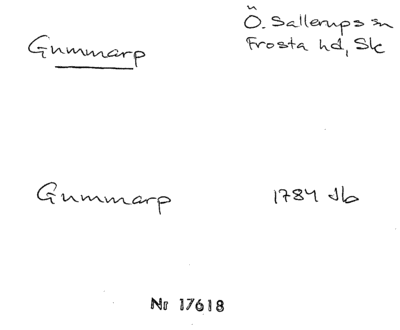 Gummarp
Ö. Sallerups sn
Frosta hd, Sk
Gummarp 1784 Jb
Nr 17618